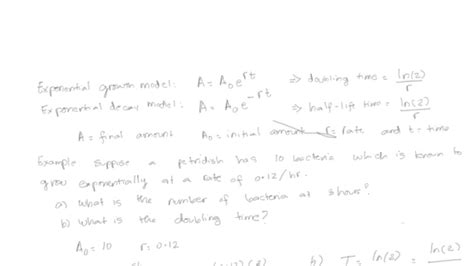 Exponential growth model: A = A₀e^rt ⇒ doubling time = ln(2)/r
Exponential decay model: A = A₀e^-rt ⇒ half-lift time = ln(2)/r
A = final amount A₀ = initial amount r = rate and t = time
Example suppose a petridish has 10 bacteria which is known to
grow exponentially at a rate of 0.12/hr.
a) what is the number of bacteria at 3 hours?
b) what is the doubling time?
A₀ = 10 r = 0.12
T = ln(2) = ln(2)